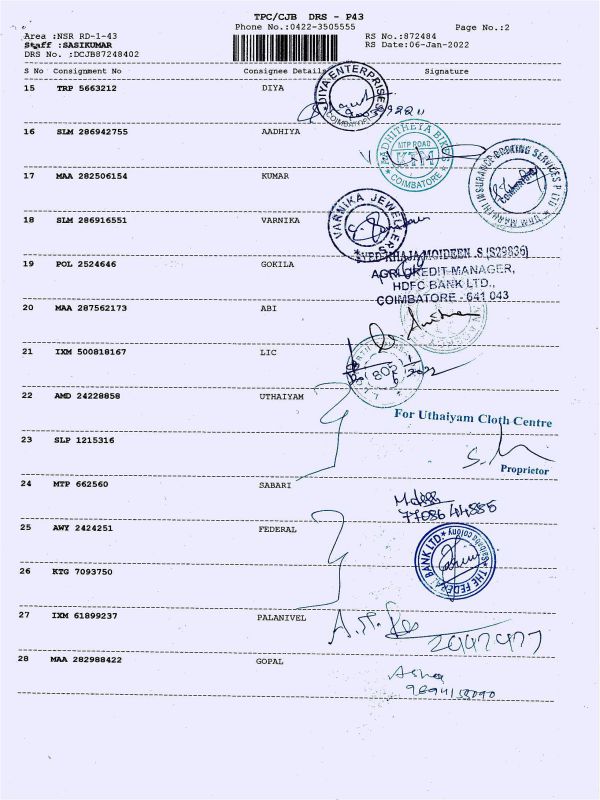 TPC/CJB DRS - P43
Phone No.:0422-3505555
Page No.:2
Area :NSR RD-1-43
RS No.:872484
Staff :SASIKUMAR
RS Date:06-Jan-2022
DRS No. :DCJB87248402
S No Consignment No Consignee Details Signature
15 TRP 5663212 DIYA
DIYA ENTERPRISES
COIMBATORE
16 SLM 286942755 AADHIYA
MTP ROAD
KTM
COIMBATORE
17 MAA 282506154 KUMAR
INSURANCE BROKING SERVICES P LTD
COIMBATORE
18 SLM 286916551 VARNIKA
VARNIKA JEWELLERS
19 POL 2524646 GOKILA
SYED KHAJA MOIDEEN .S (S29836)
AGRI CREDIT MANAGER,
HDFC BANK LTD.,
COIMBATORE - 641 043
20 MAA 287562173 ABI
21 IXM 500818167 LIC
805
22 AMD 24228858 UTHAIYAM
For Uthaiyam Cloth Centre
23 SLP 1215316
Proprietor
24 MTP 662560 SABARI
77086 44885
25 AWY 2424251 FEDERAL
THE FEDERAL BANK LTD.
26 KTG 7093750
27 IXM 61899237 PALANIVEL
28 MAA 282988422 GOPAL
Asha